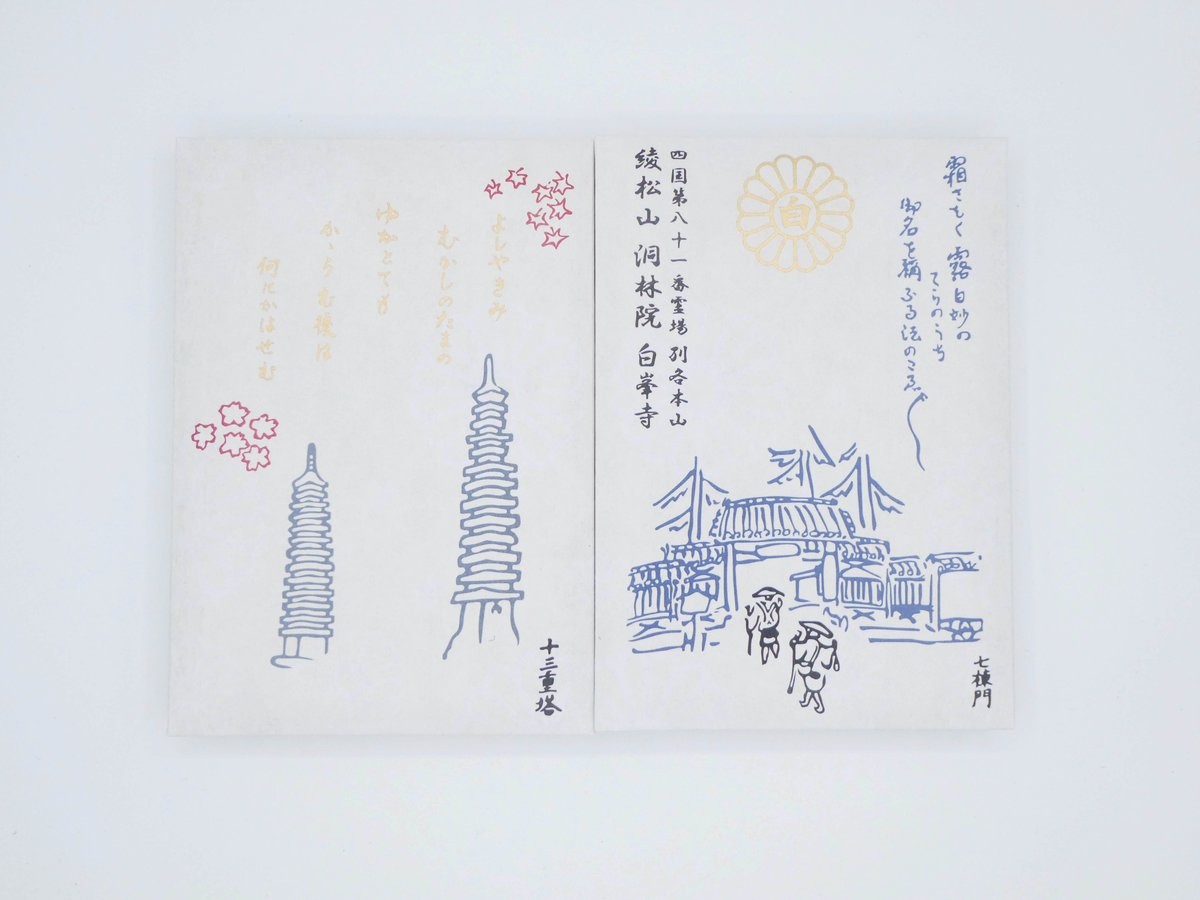 霜さむく 露白妙の
てらのうち
御名を稱ふる法のこゑ〴〵
白
四国第八十一番霊場 別格本山
綾松山 洞林院 白峯寺
七棟門
よしやきみ
むかしのたまの
ゆかとても
かゝらむ後は
何にかはせむ
十三重塔